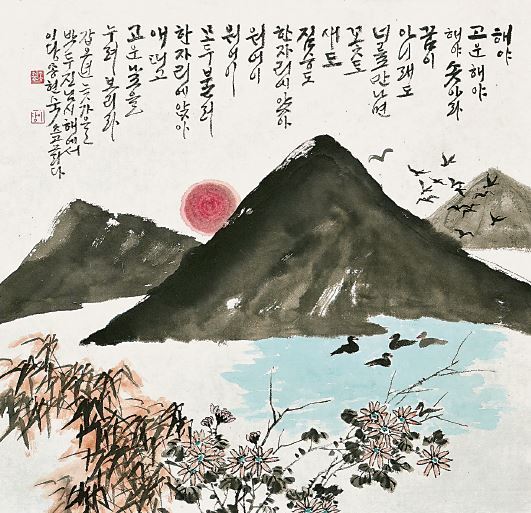 해야
고운해야
해야 솟아라
꿈이
아니래도
너를만나면
꽃도
새도
짐승도
한자리에앉아
워어이
워어이
모두불러
한자리에앉아
애띠고
고운날을
누려보리라
박두진님시해에서